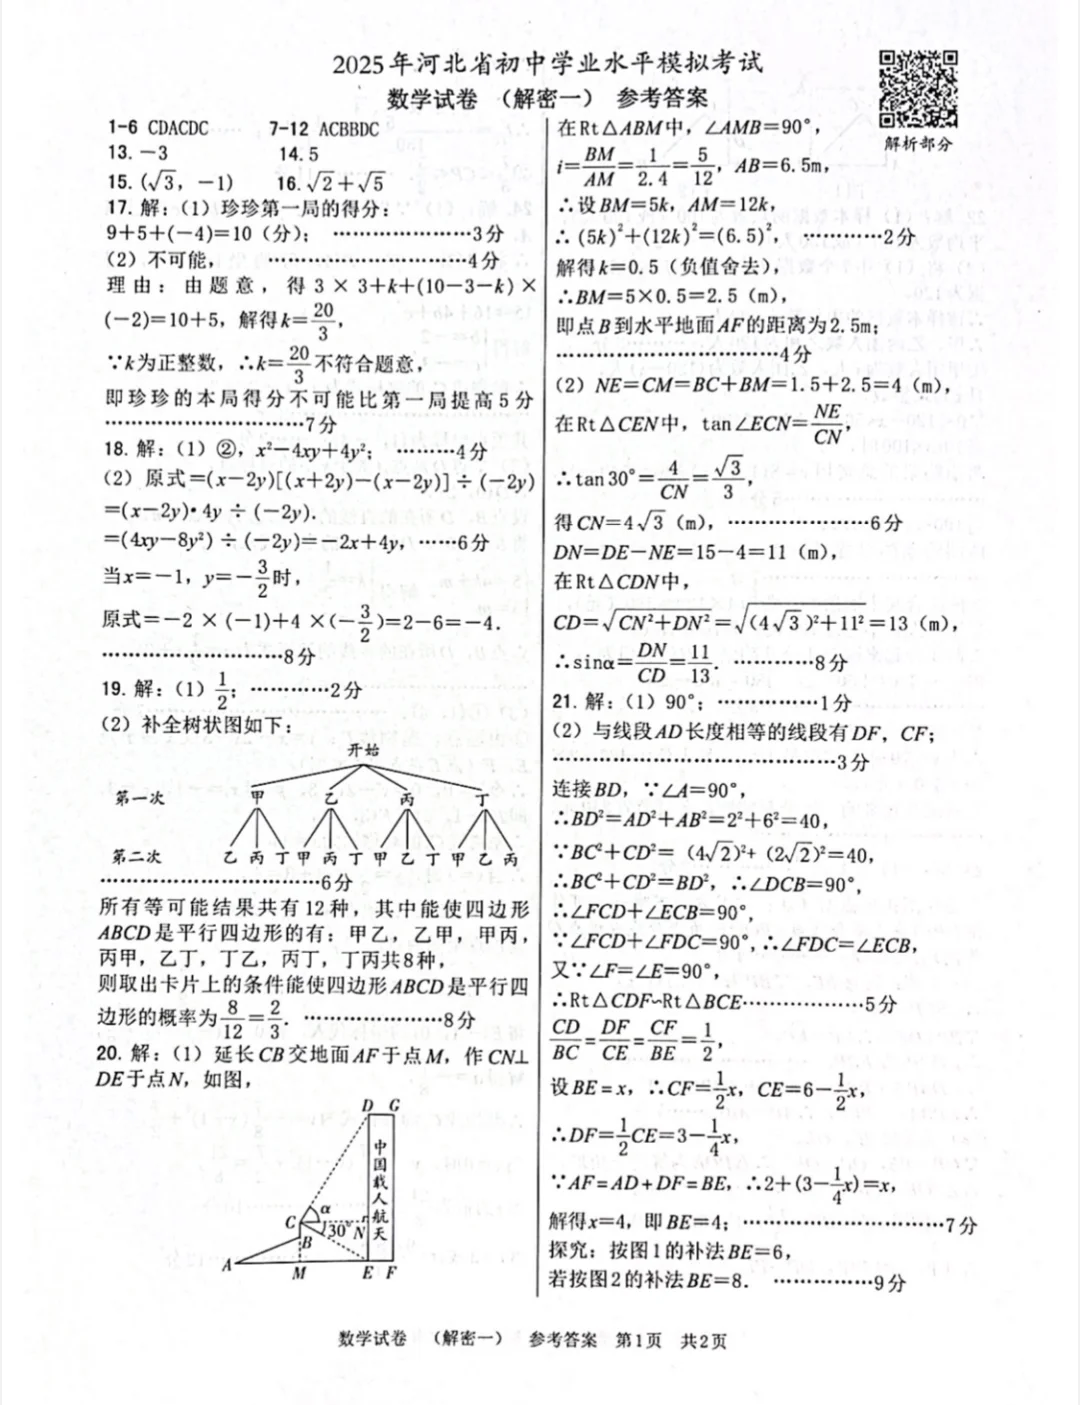 2025年河北省初中学业水平模拟考试
数学试卷 （解密一） 参考答案
解析部分
1-6 CDACDC 7-12 ACBBDC
13. －3 14. 5
15. (√3，－1) 16. √2＋√5
17. 解：（1）珍珍第一局的得分：
9＋5＋(－4)＝10（分）； …………………3分
（2）不可能， …………………………4分
理由：由题意，得 3 × 3＋k＋(10－3－k) ×
(－2)＝10＋5，解得k＝20/3，
∵k为正整数，∴k＝20/3不符合题意，
即珍珍的本局得分不可能比第一局提高5分
…………………………7分
18. 解：（1）②，x²－4xy＋4y²； ………4分
（2）原式＝(x－2y)[(x＋2y)－(x－2y)] ÷ (－2y)
＝(x－2y)• 4y ÷ (－2y).
＝(4xy－8y²) ÷ (－2y)＝－2x＋4y，……6分
当x＝－1，y＝－3/2时，
原式＝－2 × (－1)＋4 ×(－3/2)＝2－6＝－4．
………………………8分
19. 解：（1）1/2； …………2分
（2）补全树状图如下：
开始
第一次 甲 乙 丙 丁
第二次 乙 丙 丁 甲 丙 丁 甲 乙 丁 甲 乙 丙
……………………………6分
所有等可能结果共有12种，其中能使四边形
ABCD是平行四边形的有：甲乙，乙甲，甲丙，
丙甲，乙丁，丁乙，丙丁，丁丙共8种，
则取出卡片上的条件能使四边形ABCD是平行四
边形的概率为8/12＝2/3． …………………8分
20. 解：（1）延长CB交地面AF于点M，作CN⊥
DE于点N，如图，
D G
中国载人航天
C α
30° N
B
A
M E F
在Rt△ABM中，∠AMB＝90°，
i＝BM/AM＝1/2.4＝5/12，AB＝6.5m，
∴设BM＝5k，AM＝12k，
∴(5k)²＋(12k)²＝(6.5)²， …………2分
解得k＝0.5（负值舍去），
∴BM＝5×0.5＝2.5（m），
即点B到水平地面AF的距离为2.5m；
……………………………4分
（2）NE＝CM＝BC＋BM＝1.5＋2.5＝4（m），
在Rt△CEN中，tan∠ECN＝NE/CN，
∴tan30°＝4/CN＝√3/3，
得CN＝4√3（m），…………………6分
DN＝DE－NE＝15－4＝11（m），
在Rt△CDN中，
CD＝√CN²＋DN²＝√(4√3)²＋11²＝13（m），
∴sinα＝DN/CD＝11/13． …………8分
21. 解：（1）90°； ……………1分
（2）与线段AD长度相等的线段有DF，CF；
……………………………………3分
连接BD，∵∠A＝90°，
∴BD²＝AD²＋AB²＝2²＋6²＝40，
∵BC²＋CD²＝（4√2)²＋（2√2)²＝40，
∴BC²＋CD²＝BD²，∴∠DCB＝90°，
∴∠FCD＋∠ECB＝90°，
∵∠FCD＋∠FDC＝90°，∴∠FDC＝∠ECB，
又∵∠F＝∠E＝90°，
∴Rt△CDF∽Rt△BCE………………5分
CD/BC＝DF/CE＝CF/BE＝1/2，
设BE＝x，∴CF＝1/2x，CE＝6－1/2x，
∴DF＝1/2CE＝3－1/4x，
∵AF＝AD＋DF＝BE，∴2＋(3－1/4x)＝x，
解得x＝4，即BE＝4；…………………………7分
探究：按图1的补法BE＝6，
若按图2的补法BE＝8． ……………9分
数学试卷 （解密一） 参考答案 第1页 共2页